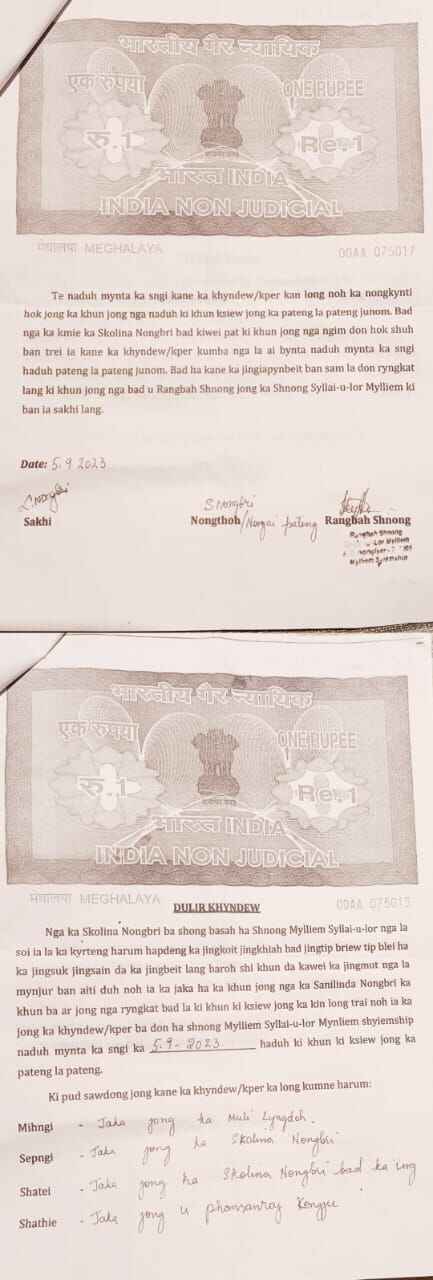 भारतीय गैर न्यायिक
एक रुपया
ONE RUPEE
रु.1
Re.1
भारत INDIA
INDIA NON JUDICIAL
मेघालय MEGHALAYA
00AA 075017
Te naduh mynta ka sngi kane ka khyndew/kper kan long noh ka nongkynti
hok jong ka khun jong nga naduh ki khun ksiew jong ka pateng la pateng junom. Bad
nga ka kmie ka Skolina Nongbri bad kiwei pat ki khun jong nga ngim don hok shuh
ban trei ia kane ka khyndew/kper kumba nga la ai bynta naduh mynta ka sngi
haduh pateng la pateng junom. Bad ha kane ka jingiapynbeit ban sam la don ryngkat
lang ki khun jong nga bad u Rangbah Shnong jong ka Shnong Syllai-u-lor Mylliem ki
ban ia sakhi lang.
Date: 5.9.2023
Sakhi
S Nongbri
Nongthoh/Nongai pateng
Rangbah Shnong
Rangbah Shnong
Lor Mylliem
Mylliem Syiemship
भारतीय गैर न्यायिक
एक रुपया
ONE RUPEE
रु.1
Re.1
भारत INDIA
INDIA NON JUDICIAL
मेघालय MEGHALAYA
DULIR KHYNDEW
Nga ka Skolina Nongbri ba shong basah ha Shnong Mylliem Syllai-u-lor nga la
soi ia la ka kyrteng harum hapdeng ka jingkoit jingkhiah bad jingtip briew tip blei ha
ka jingsuk jingsain da ka jingbeit lang baroh shi khun da kawei ka jingmut nga la
mynjur ban aiti duh noh ia ka jaka ha ka khun jong nga ka Sanilinda Nongbri ka
khun ba ar jong nga ryngkat bad la ki khun ki ksiew jong ka kin long trai noh ia ka
jong ka khyndew/kper ba don ha shnong Mylliem Syllai-u-lor Mynliem shyiemship
naduh mynta ka sngi ka 5.9-2023 haduh ki khun ki ksiew jong ka
pateng la pateng.
Ki pud sawdong jong kane ka khyndew/kper ka long kumne harum:
Mihngi - Jaka jong ka Muli Lyngdoh.
Sepngi - Jaka jong ka Skolina Nongbri
Shatei - Jaka jong ka Skolina Nongbri bad ka ing
Shathie - Jaka jong u